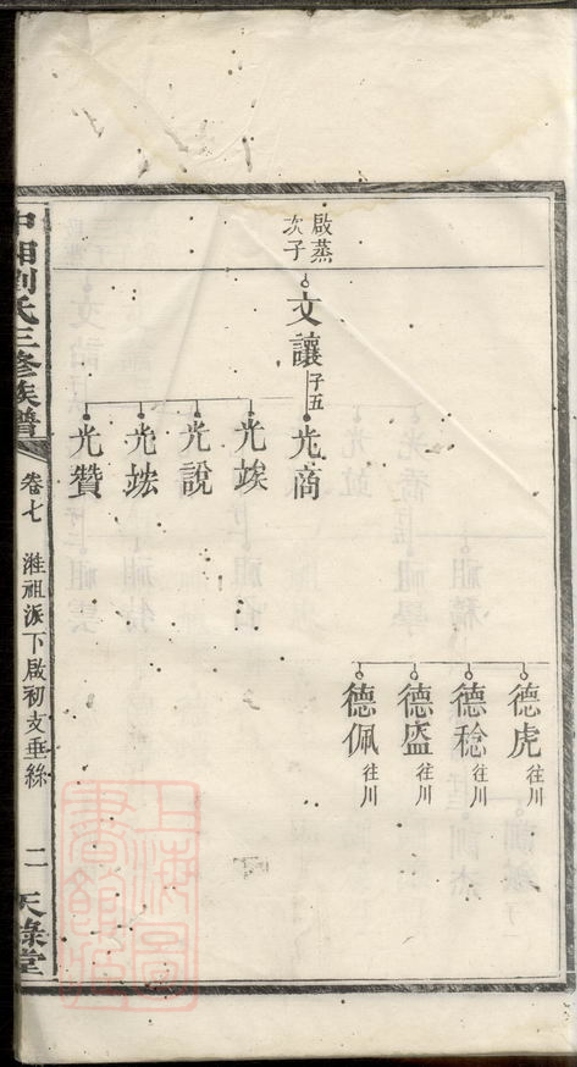 德虎 往川
德稔 往川
德盛 往川
德佩 往川
啟蒸
次子
文讓 子五
光商
光竢
光說
光竑
光贊
中湘劉氏三修族譜
卷七
淮祖派下啟初支垂絲
二
天祿堂
上海圖書館藏